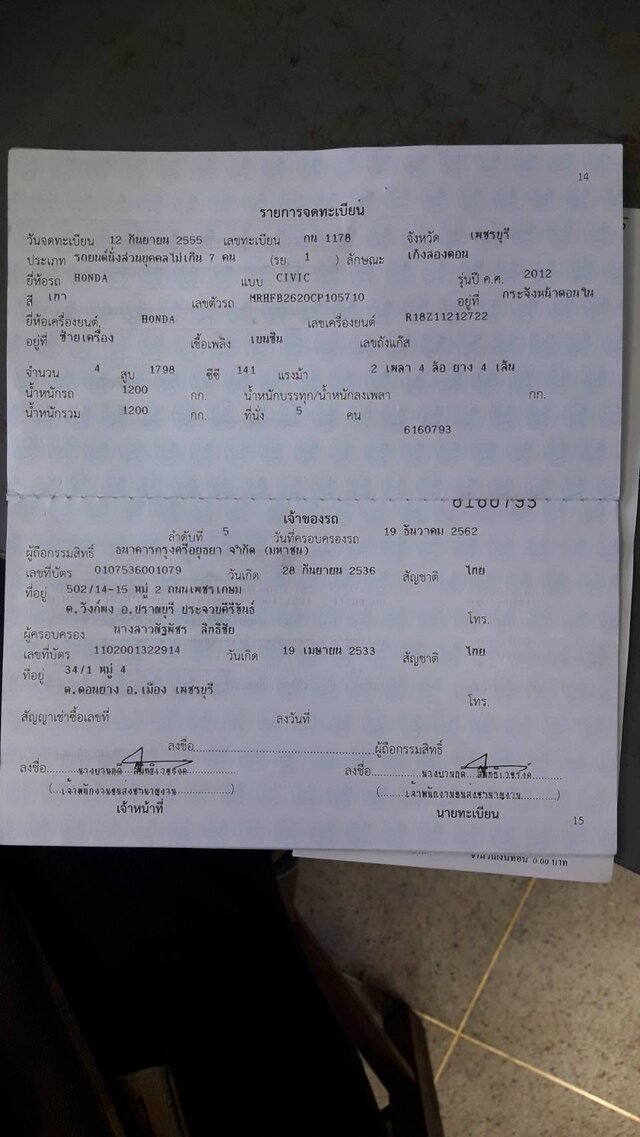 14
รายการจดทะเบียน
วันจดทะเบียน 12 กันยายน 2555 เลขทะเบียน กน 1178 จังหวัด เพชรบุรี
ประเภท รถยนต์นั่งส่วนบุคคลไม่เกิน 7 คน (รย. 1 ) ลักษณะ เก๋งสองตอน
ยี่ห้อรถ HONDA แบบ CIVIC รุ่นปี ค.ศ. 2012
สี เทา เลขตัวรถ MRHFB2620CP105710 อยู่ที่ กระจังหน้าตอนใน
ยี่ห้อเครื่องยนต์ HONDA เลขเครื่องยนต์ R18Z11212722
อยู่ที่ ซ้ายเครื่อง เชื้อเพลิง เบนซิน เลขถังแก๊ส
จำนวน 4 สูบ 1798 ซีซี 141 แรงม้า 2 เพลา 4 ล้อ ยาง 4 เส้น
น้ำหนักรถ 1200 กก. น้ำหนักบรรทุก/น้ำหนักลงเพลา กก.
น้ำหนักรวม 1200 กก. ที่นั่ง 5 คน
6160793
6160793
เจ้าของรถ
ลำดับที่ 5 วันที่ครอบครองรถ 19 ธันวาคม 2562
ผู้ถือกรรมสิทธิ์ ธนาคารกรุงศรีอยุธยา จำกัด (มหาชน)
เลขที่บัตร 0107536001079 วันเกิด 28 กันยายน 2536 สัญชาติ ไทย
ที่อยู่ 502/14-15 หมู่ 2 ถนนเพชรเกษม
ต.วังก์พง อ.ปราณบุรี ประจวบคีรีขันธ์ โทร.
ผู้ครอบครอง นางสาวณัฐพัชร สิทธิชัย
เลขที่บัตร 1102001322914 วันเกิด 19 เมษายน 2533 สัญชาติ ไทย
ที่อยู่ 34/1 หมู่ 4
ต.ดอนยาง อ.เมือง เพชรบุรี โทร.
สัญญาเช่าซื้อเลขที่ ลงวันที่
ลงชื่อ ผู้ถือกรรมสิทธิ์
ลงชื่อ ลงชื่อ
(เจ้าพนักงานขนส่งชำนาญงาน) (เจ้าพนักงานขนส่งชำนาญงาน)
เจ้าหน้าที่ นายทะเบียน
15
จำนวนเงินทอน 0.00 บาท